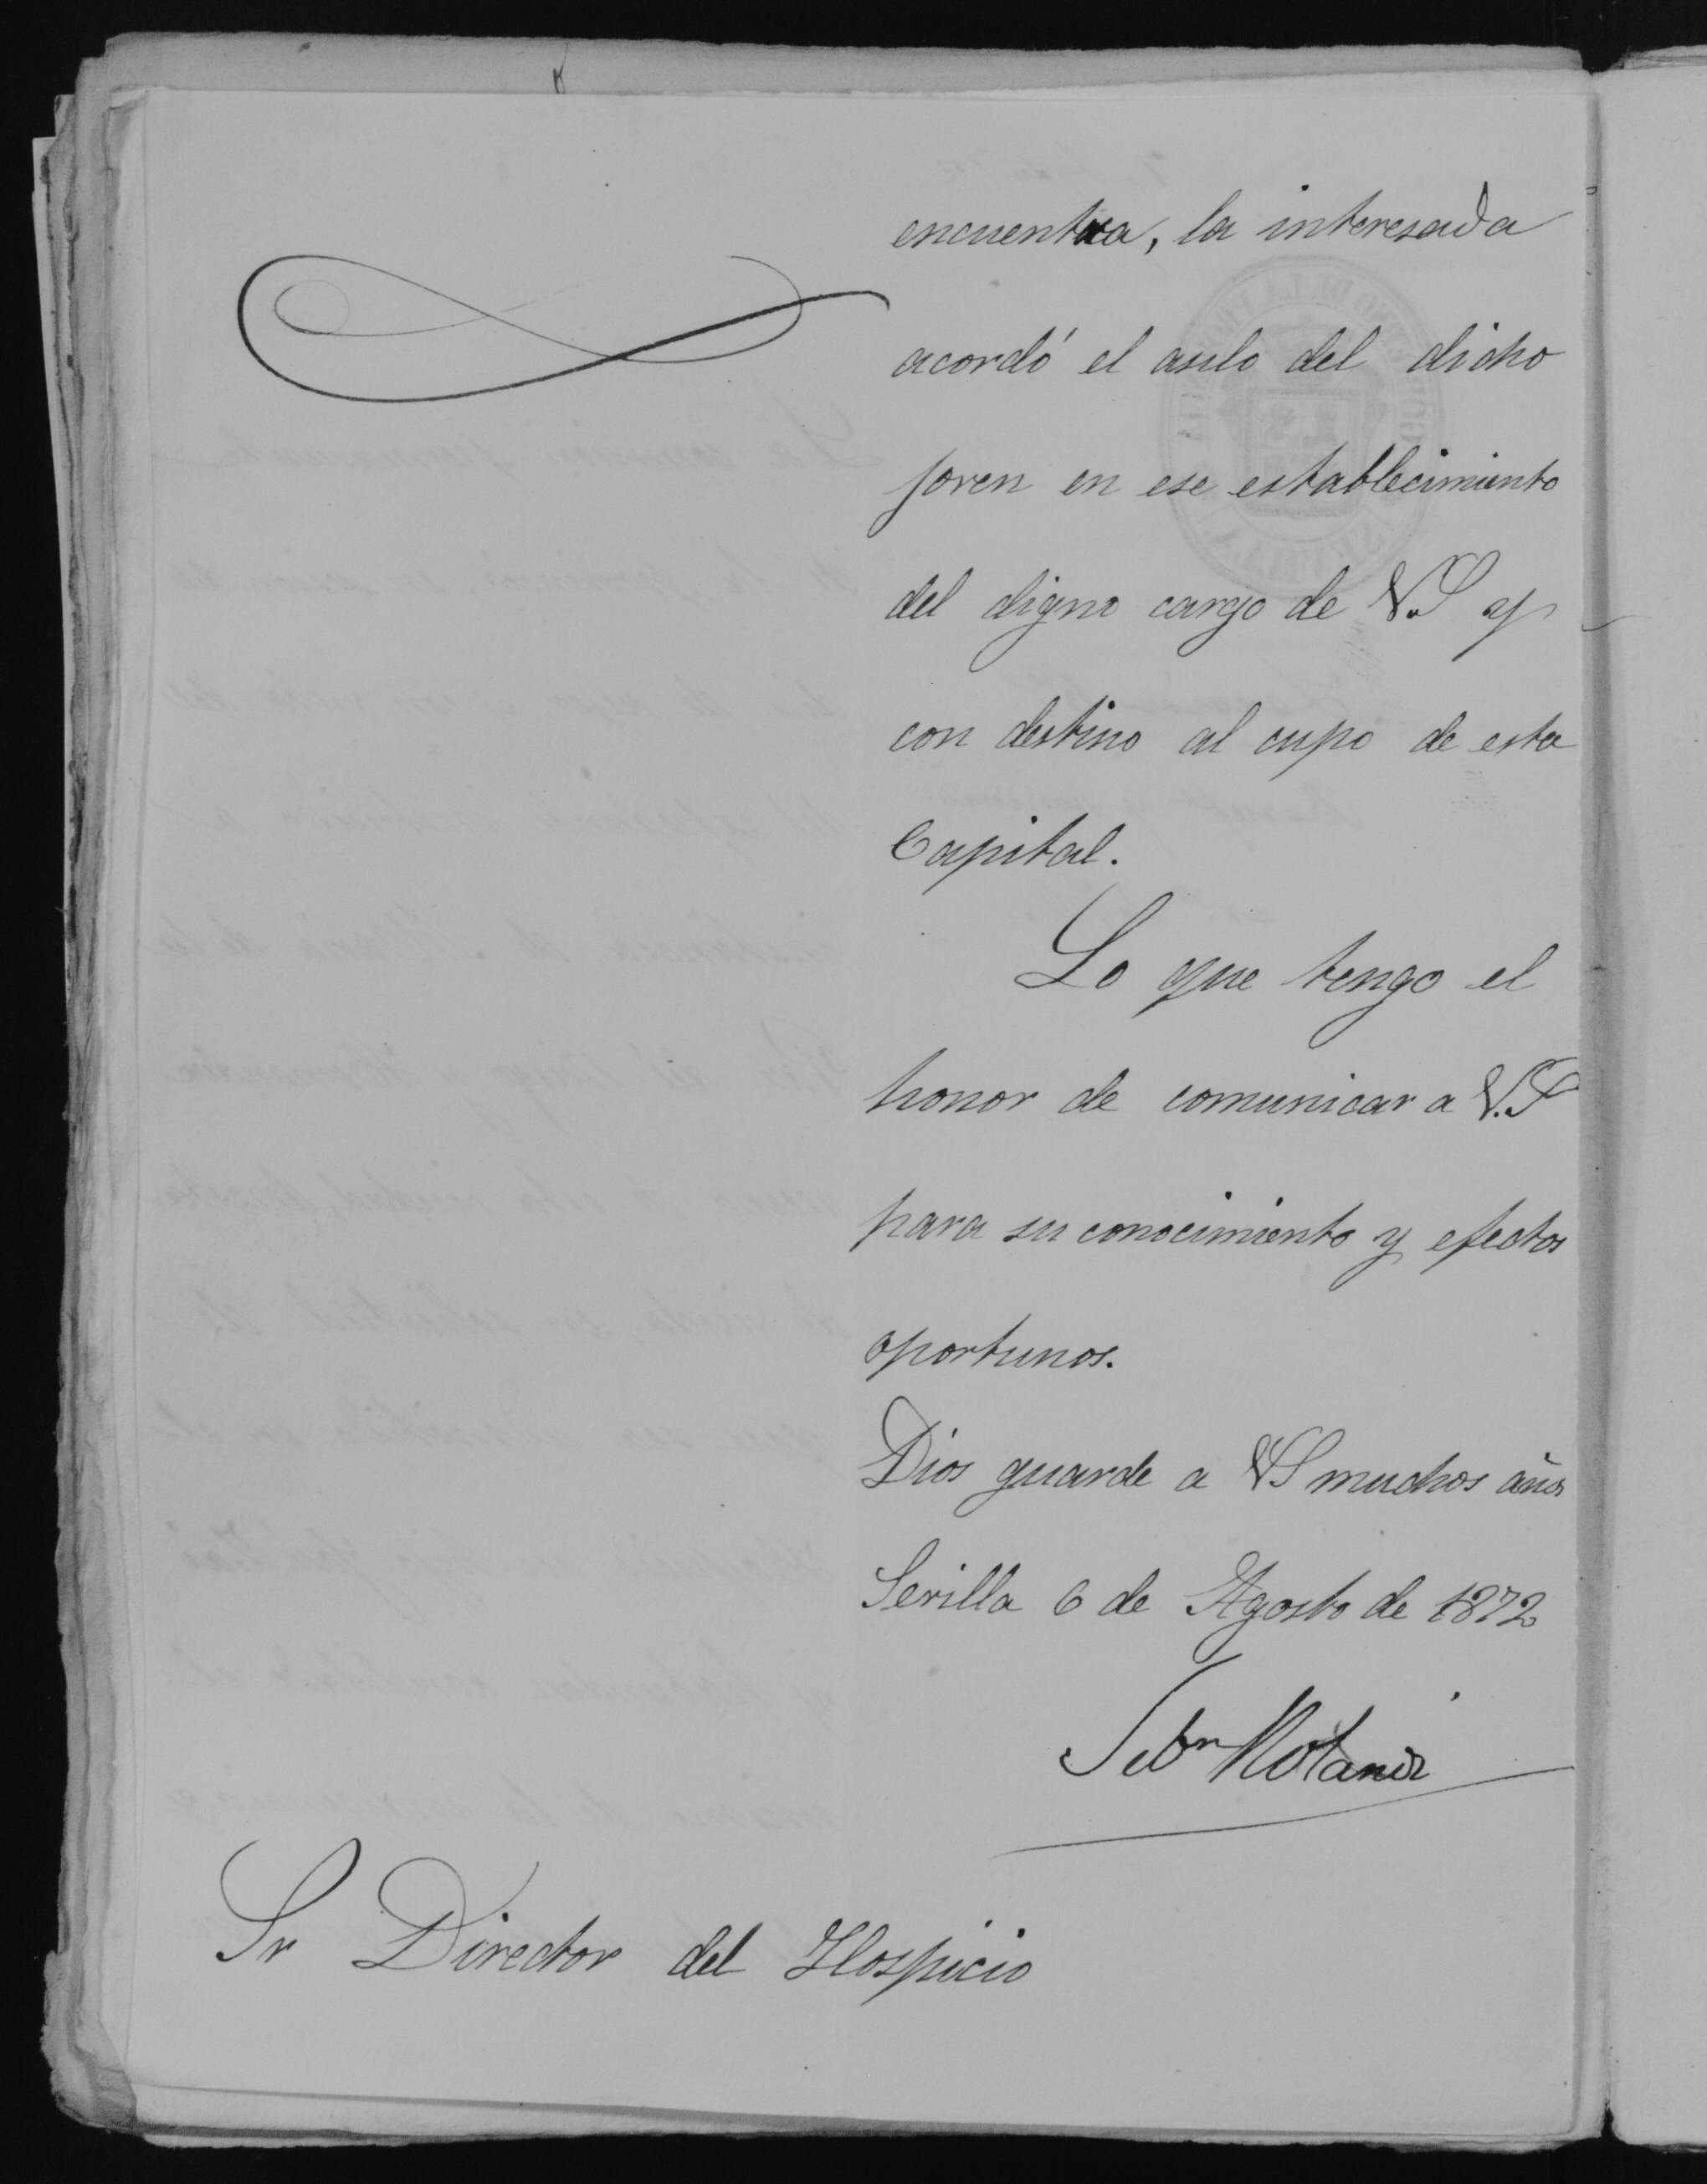 encuentra, la interesada
acordó el asilo del dicho
joven en ese establecimiento
del digno cargo de V.S y
con destino al cupo de esta
Capital.
Lo que tengo el
honor de comunicar a V.S
para su conocimiento y efectos
oportunos.
Dios guarde a VS muchos años
Sevilla 6 de Agosto de 1872
Sr Director del Hospicio